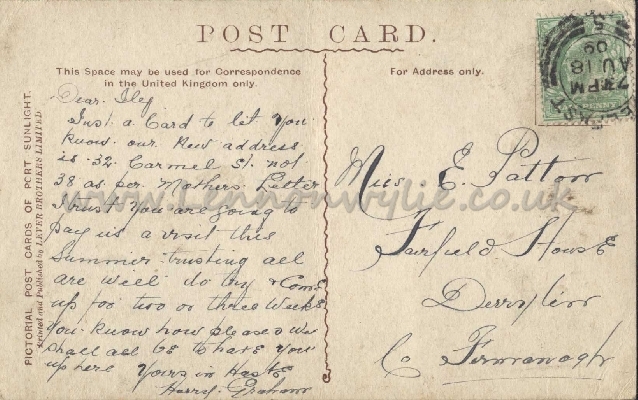 POST CARD.
This Space may be used for Correspondence
in the United Kingdom only.
For Address only.
PICTORIAL POST CARDS OF PORT SUNLIGHT.
Printed and Published by LEVER BROTHERS LIMITED
BELFAST
7 PM
AU 18
09
PENNY
www.lennonwylie.co.uk
Dear
Just a Card to let you
know our New address
is 32 Carmel St. not
38 as per Mothers Letter
I trust you are going to
pay us a visit this
Summer trusting all
are well do try & Come
up for two or three Weeks
you know how pleased we
shall all be to have you
up here Yours in Haste
Harry Graham
Miss E. Patton
Fairfield House
Derrylin
Co Fermanagh